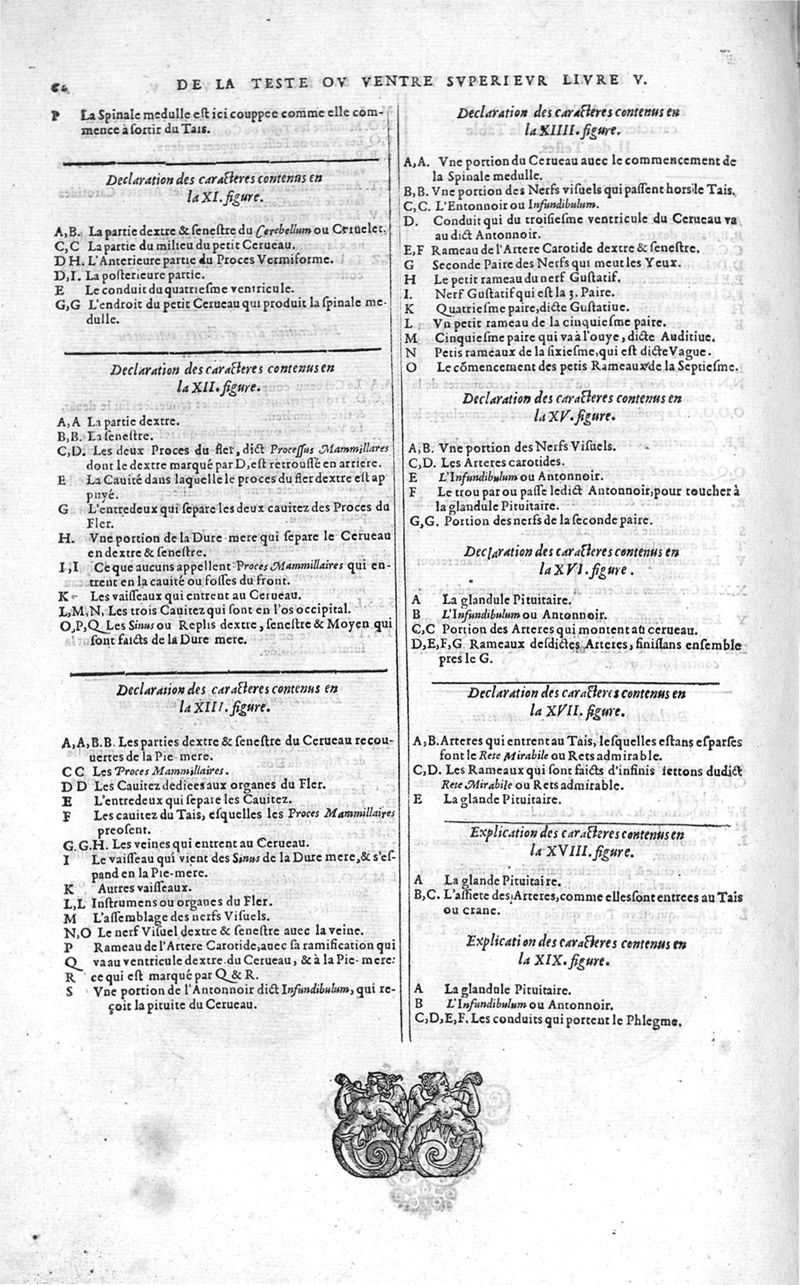 DE LA TESTE OV VENTRE SVPERIEVR LIVRE V.
P La Spinale medulle est ici couppee comme elle com-
mence à sortir du Tais.
Declaration des caracteres contenus en
la XI. figure.
A, B. La partie dextre & senestre du Cerebellum ou Ceruelet.
C, C La partie du milieu du petit Cerueau.
D H. L'Anterieure partie du Proces Vermiforme.
D, I. La posterieure partie.
E Le conduit du quatriesme ventricule.
G, G L'endroit du petit Cerueau qui produit la spinale me-
dulle.
Declaration des caracteres contenus en
la XII. figure.
A, A La partie dextre.
B, B. La senestre.
C, D. Les deux Proces du fler, dict Processus Mammillares
dont le dextre marqué par D, est retroussé en arriere.
E La Cauité dans laquelle le proces du fler dextre est ap
puyé.
G L'entredeux qui separe les deux cauitez des Proces du
Fler.
H. Vne portion de la Dure-mere qui separe le Cerueau
en dextre & senestre.
I, I Ce que aucuns appellent Proces Mammillaires qui en-
trent en la cauité ou fosses du front.
K Les vaisseaux qui entrent au Cerueau.
L, M, N, Les trois Cauitez qui sont en l'os occipital.
O, P, Q Les Sinus ou Replis dextre, senestre & Moyen qui
sont faicts de la Dure mere.
Declaration des caracteres contenus en
la XIII. figure.
A, A, B. B. Les parties dextre & senestre du Cerueau recou-
uertes de la Pie-mere.
C C Les Proces Mammillaires.
D D Les Cauitez dediees aux organes du Fler.
E L'entredeux qui separe les Cauitez.
F Les cauitez du Tais, esquelles les Proces Mammillaires
preosent.
G. G. H. Les veines qui entrent au Cerueau.
I Le vaisseau qui vient des Sinus de la Dure mere, & s'es-
pand en la Pie-mere.
K Autres vaisseaux.
L, L Instrumens ou organes du Fler.
M L'assemblage des nerfs Visuels.
N, O Le nerf Visuel dextre & senestre auec la veine.
P Rameau de l'Artere Carotide, auec sa ramification qui
Q va au ventricule dextre du Cerueau, & à la Pie-mere:
R ce qui est marqué par Q & R.
S Vne portion de l'Antonnoir dict Infundibulum, qui re-
çoit la pituite du Cerueau.
Declaration des caracteres contenus en
la XIIII. figure.
A, A. Vne portion du Cerueau auec le commencement de
la Spinale medulle.
B, B. Vne portion des Nerfs visuels qui passent hors le Tais.
C, C. L'Entonnoir ou Infundibulum.
D. Conduit qui du troisiesme ventricule du Cerueau va
au dict Antonnoir.
E, F Rameau de l'Artere Carotide dextre & senestre.
G Seconde Paire des Nerfs qui meut les Yeux.
H Le petit rameau du nerf Gustatif.
I. Nerf Gustatif qui est la 3. Paire.
K Quatriesme paire, dicte Gustatiue.
L Vn petit rameau de la cinquiesme paire.
M Cinquiesme paire qui va à l'ouye, dicte Auditiue.
N Petis rameaux de la sixiesme, qui est dicte Vague.
O Le cõmencement des petis Rameaux de la Septiesme.
Declaration des caracteres contenus en
la XV. figure.
A, B. Vne portion des Nerfs Visuels.
C, D. Les Arteres carotides.
E L'Infundibulum ou Antonnoir.
F Le trou par ou passe ledict Antonnoir, pour toucher à
la glandule Pituitaire.
G, G. Portion des nerfs de la seconde paire.
Declaration des caracteres contenus en
la XVI. figure.
A La glandule Pituitaire.
B L'Infundibulum ou Antonnoir.
C, C Portion des Arteres qui montent au cerueau.
D, E, F, G Rameaux desdictes Arteres, finissans ensemble
pres le G.
Declaration des caracteres contenus en
la XVII. figure.
A, B. Arteres qui entrent au Tais, lesquelles estans esparses
font le Rete Mirabile ou Rets admirable.
C, D. Les Rameaux qui sont faicts d'infinis iettons dudict
Rete Mirabile ou Rets admirable.
E La glande Pituitaire.
Explication des caracteres contenus en
la XVIII. figure.
A La glande Pituitaire.
B, C. L'assiete des Arteres, comme elles sont entrees au Tais
ou crane.
Explication des caracteres contenus en
la XIX. figure.
A La glandule Pituitaire.
B L'Infundibulum ou Antonnoir.
C, D, E, F. Les conduits qui portent le Phlegme.